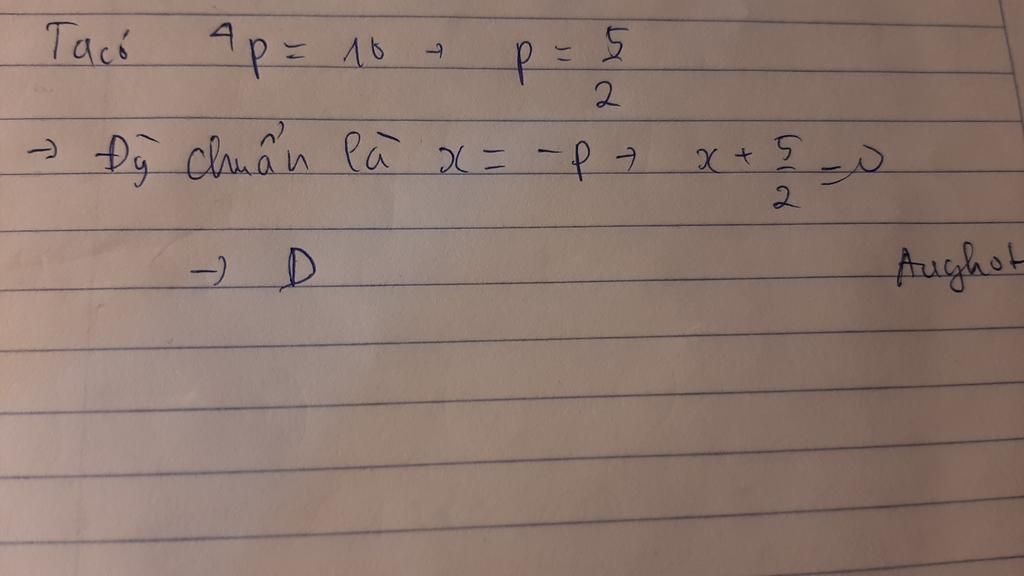 Ta có 4p = 10 → p = 5/2
→ Đg chuẩn là x = -p → x + 5/2 = 0
→ D
Aughot